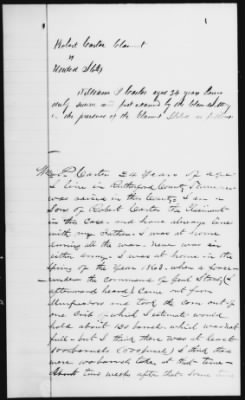 Robert Carter Claimant
vs
United States
William P Carter aged 24 years being
duly sworn and first examd by the Claimants Atty
in the presence of the Claimt
Wm. P. Carter 24 Years of age
I live in Rutherford County Tenn
was raised in this County. I am a
Son of Robert Carter the Claimant
in this Case. and have always lived
with my Father. I was at home
during all the war. never was in
either army. I was at home in the
Spring of the Year 1863. when a
the command of Genl Stanley
afterward heard) Came out from
Murfreesboro and took the corn out of
one Crib of which I estimate would
hold about 120 barrels which was not
full - but I think there was at least
100 barrels I think this
were wabarsh take. at that time
About two weeks after that Same time